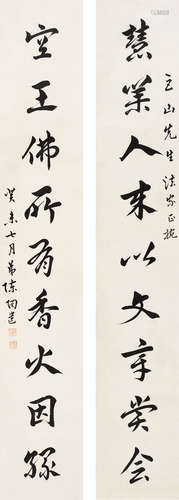 立山先生法家正
慧業人來以文章賞会
空王佛所有香火因緣
癸未七月弟陳陶遺